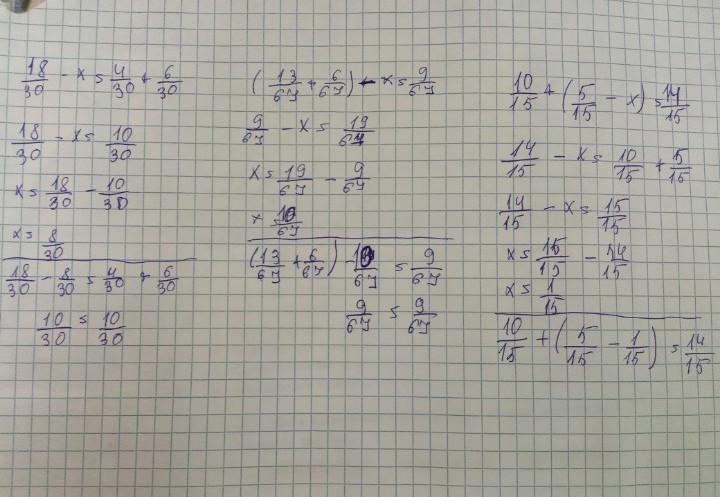 18/30 - x = 4/30 + 6/30
18/30 - x = 10/30
x = 18/30 - 10/30
x = 8/30
18/30 - 8/30 = 4/30 + 6/30
10/30 = 10/30
(13/67 + 6/67) - x = 9/67
9/67 - x = 19/67
x = 19/67 - 9/67
x 10/67
(13/67 + 6/67) - 10/67 = 9/67
9/67 = 9/67
10/15 + (5/15 - x) = 14/15
14/15 - x = 10/15 + 5/15
14/15 - x = 15/15
x = 15/15 - 14/15
x = 1/15
10/15 + (5/15 - 1/15) = 14/15